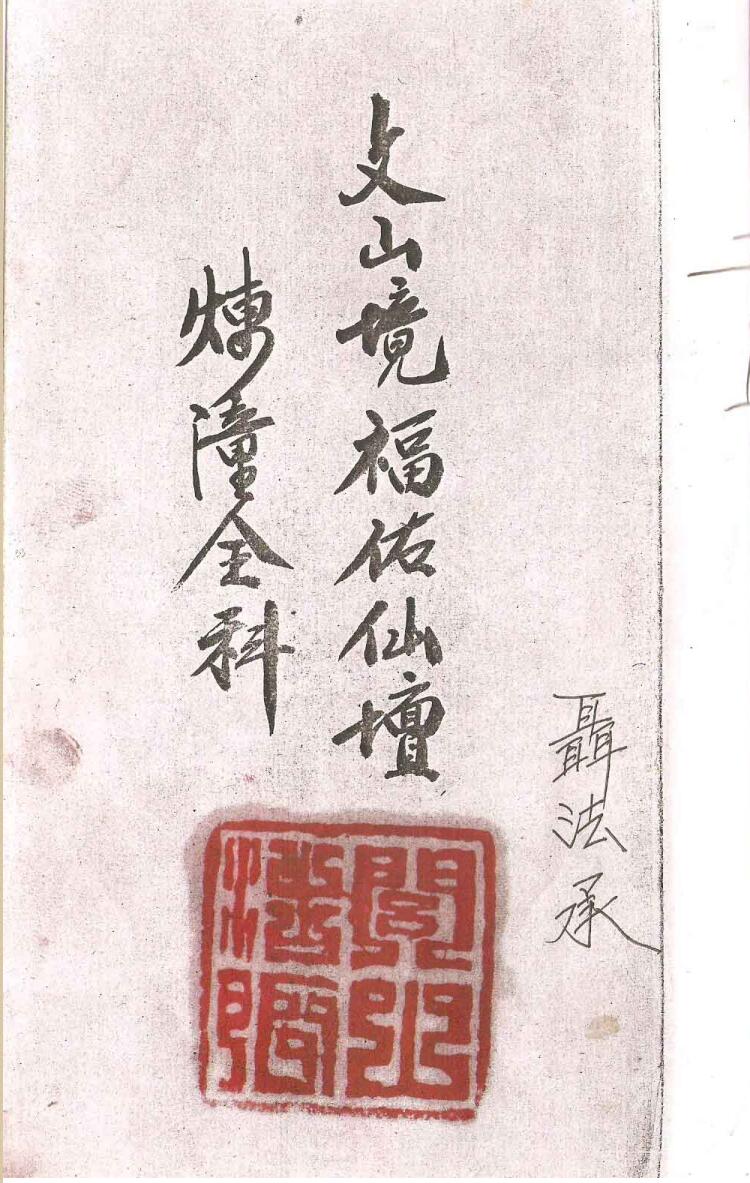 文山境福佑仙壇
煉潼全科
聶法承